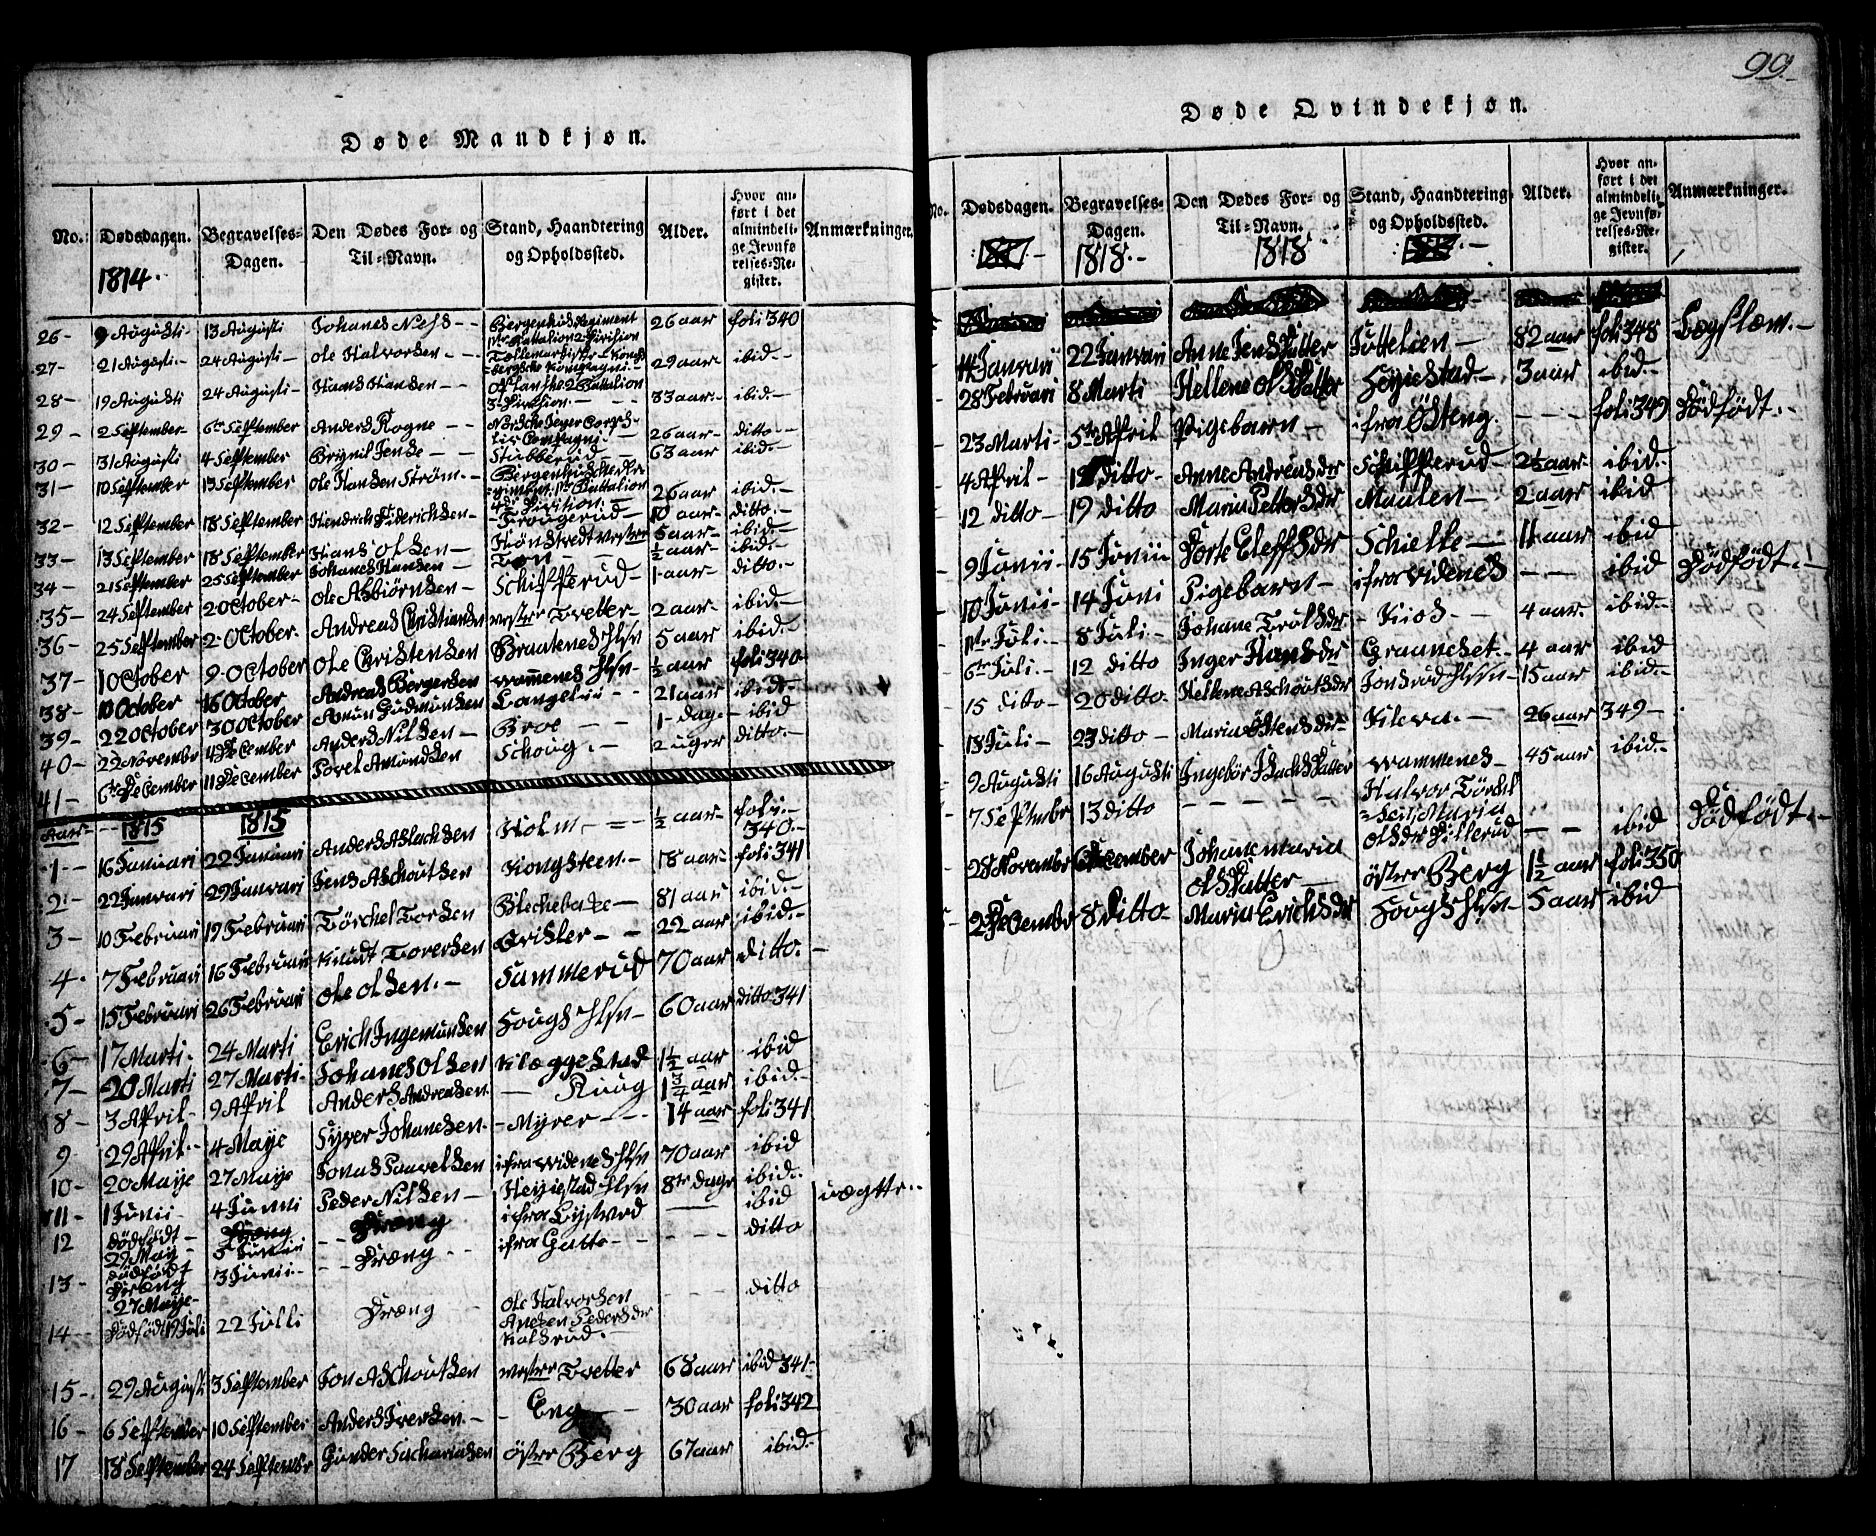 Døde Mandkjøn.
No. Dødsdagen. 1814. Begravelses-Dagen. Den Dødes For- og Til-Navn. Stand, Haandtering og Opholdssted. Alder. Hvor anført i det almindelige Jevnførelses-Register. Anmærkninger.
26- 9 Augusti 13 Augusti Johanes Nels Bergenhus Regiment 1ste Battalion 2 Division 26 aar foli 340
27- 21 Augusti 24 Augusti Ole Halvorsen 29 aar ibid.
28- 19 Augusti 24 Augusti Hans Hansen 2 Battalion 3 Division 33 aar ibid.
29- 2 September 6te September Anders Rogne Norsche Jeger Corps 26 aar ditto
30- 31 Augusti 4 September Jense Stubberud 63 aar ibid.
31- 10 September 13 September Ole Hansen Strøm Battalion 4de Division 26 aar ibid.
32- 12 September 18 September Hendrich Friderichsen Frougerud 10 aar ditto.
33- 13 September 18 September Hans Olsen Hønstvedt vestre 5 aar ibid.
34- 21 September 25 September Johanes Hansen Ton ½ aar ibid.
35- 24 September 2 October Ole Asbiørnsen Schifferud 1 aar ditto.
36- 25 September 2 October Andreas Christiansen vestre Tvetter 2 aar ibid.
37- 1 October 9 October Ole Christensen Braatenes Hlsn 5 aar ibid.
38- 10 October 16 October Andreas Bergersen Wammenes Hlsn ½ aar foli 340
39- 22 October 30 October Amun Gudmunsen Langelii 21 aar ibid.
40- 29 November 4 December Anders Nilsen Broe 1 Dag ibid
41- 6te December 11 December Torel Amundsen Schoug 2 uger ditto.
Aar 1815 1815
1- 16 Januari 22 Januari Anders Aslachsen Holm ½ aar foli 340
2- 22 Januari 29 Januari Jens Aschoutsen Kongsteen 18 aar foli 341
3- 10 Februari 19 Februari Törchel Torsen Blechebake 81 aar ibid.
4- 7 Februari 16 Februari Knudt Toversen Evisler 22 aar ibid.
5- 15 Februari 26 Februari Ole Olsen Sammerud 70 aar ditto.
6- 17 Marti 24 Marti Erich Ingemunsen Hougs Hlsn 60 aar ditto 341
7- 20 Marti 27 Marti Johanes Olsen Klæggestad 1½ aar ibid
8- 3 April 9 April Anders Andreasen Ruug 1¾ aar ibid.
9 29 April 4 Maye Syver Johanesen Myrer 14 aar foli 341
10- 20 Maye 27 Maye Jonas Paavelsen ifra Widenes Hlsn 70 aar ibid
11- 1 Junii 4 Junii Peder Nilsen Heyiestad Hlsn 8te Dage ibid.
12 dødfødt 29 May 5 Junii Dræng ifra Lystvedt ibid uægtte.
13- dødfødt Dræng 27 Maye 3 Junii Dræng ifra Gatte ditto
14- Dødfødt 19 Juli 22 Julli Dræng Ole Halvorsen Anden Pedersdr Kalsrud ditto
15- 29 Augusti 3 September Jon Aschoutsen vestre Tvetter 68 aar ibid 341
16- 6 September 10 September Anders Iversen Eng 30 aar foli 342
17 18 September 24 September Gunder Sachariasen östre Berg 67 aar ibid.
99.
Døde Qvindekjøn.
No. Dødsdagen. Begravelses-Dagen. 1818. Den Dødes For- og Til-Navn. 1818 Stand, Haandtering og Opholdssted. Alder. Hvor anført i det almindelige Jevnførelses-Register. Anmærkninger.
14 Januari 22 Januari Anne Jens Datter Juttelien 82 aar foli 348 Lægslæm.
28 Februari 8 Marti Hellene Ols Datter Heyiestad 3 aar ibid.
23 Marti 5te April Pigebarn ifra Östeng foli 349 Dödfödt.
4 April 12 ditto Anne Andreasdr Schifferud 2½ aar ibid.
12 ditto 19 ditto Maria Pettersdr Maalen 2 aar ibid
9 Junii 15 Junii Dorte Eleffsdr Schielle 11 aar ibid
10 Junii 14 Juni Pigebarn ifra Videnes ibid Dödfödt.
1ste Juli 8 Juli Johane Trulsdr Kios 4 aar ibid.
6te Juli 12 ditto Inger Hansdr Graaneset 4 aar ibid
15 dito 20 ditto Hellene Aschoutsdr Jonsrud Hlsn 15 aar ibid.
18 Juli 23 ditto Maria Östensdr Kileva 26 aar 349
9 Augusti 16 Augusti Ingebör Isachs Datter Wammenes 45 aar ibid.
7 Septembr 13 ditto Halvor Törchelsen, Maria Olsdr Pillerud ibid Dödfödt.
28 Novembr 6 December Johanemaria Ols Datter östre Berg 1½ aar foli 350
2 Decembr 8 ditto Maria Erichsdr Hougs Hlsn 5 aar ibid